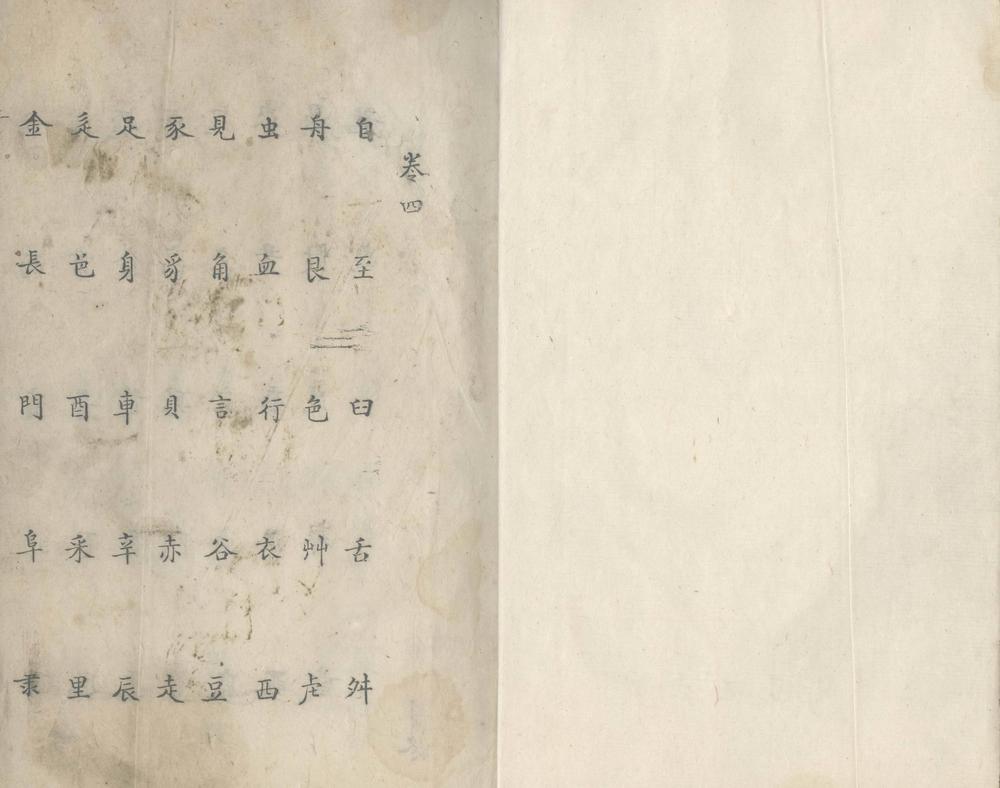 卷四
自 至 臼 舌 舛
舟 艮 色 艸 虍
虫 血 行 衣 西
見 角 言 谷 豆
豕 豸 貝 赤 走
足 身 車 辛 辰
辵 邑 酉 釆 里
金 長 門 阜 隶